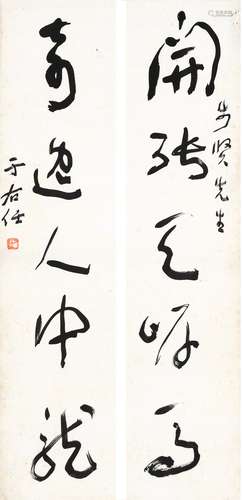 步贤先生
開張天岸馬
奇逸人中龍
于右任